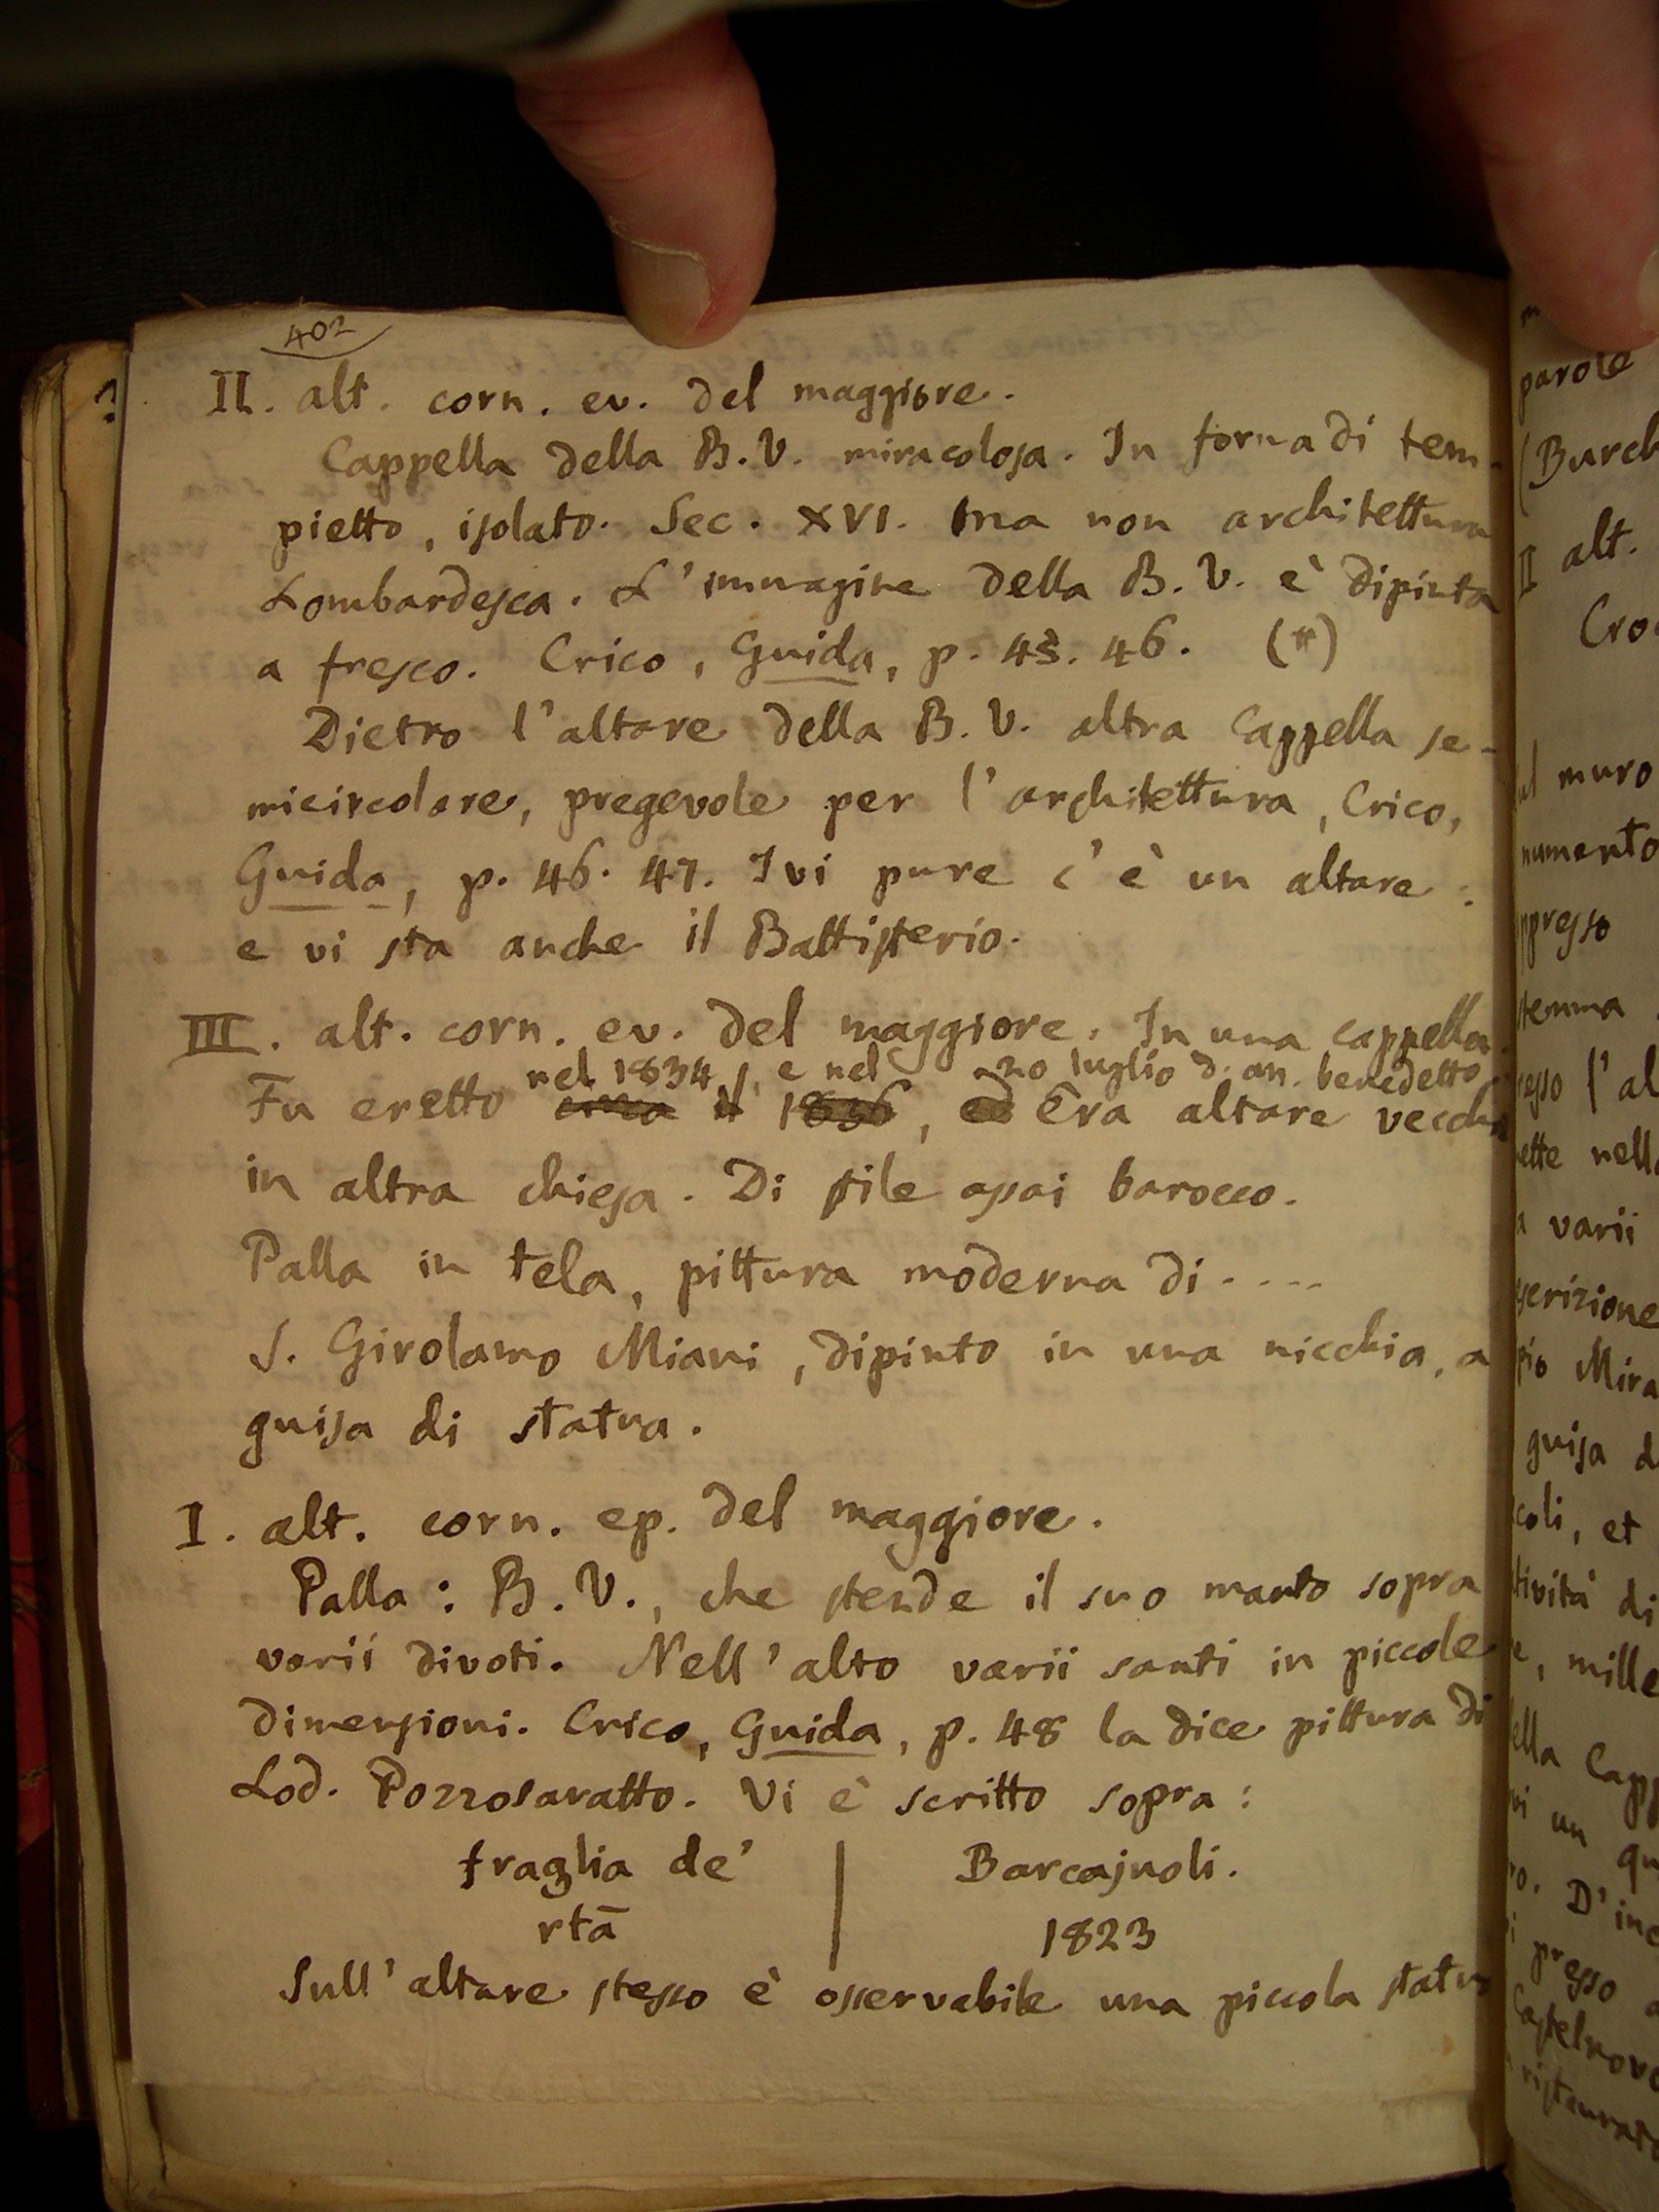 402
II. alt. corn. ev. del maggiore.
Cappella della B. V. miracolosa. In forma di tem-
pietto, isolato. Sec. XVI. ma non architettura
Lombardesca. L'immagine della B. V. è dipinta
a fresco. Crico, Guida, p. 45. 46. (*)
Dietro l'altare della B. V. altra Cappella se-
micircolare, pregevole per l'architettura, Crico,
Guida, p. 46. 47. Ivi pure c'è un altare:
e vi sta anche il Battisterio.
III. alt. corn. ev. del maggiore. In una cappella.
nel 1834, e nel 20 luglio d. an. benedetto
Fu eretto circa il 1836, ed Era altare vecchio
in altra chiesa. Di stile assai barocco.
Palla in tela, pittura moderna di....
S. Girolamo Miani, dipinto in una nicchia, a
guisa di statua.
I. alt. corn. ep. del maggiore.
Palla: B. V., che stende il suo manto sopra
varii divoti. Nell'alto varii santi in piccole
dimensioni. Crico, Guida, p. 48 la dice pittura di
Lod. Pozzosaratto. Vi è scritto sopra:
fraglia de' | Barcajuoli.
rtā | 1823
Sull'altare stesso è osservabile una piccola statua
parole
(Burch
II alt.
Cro
muro
numento
ppresso
stemma
l'al
nella
varii
scrizione
Mira
guisa d
coli, et
tività di
mille
Capp
un qu
D'inc
presso
Castelnovo